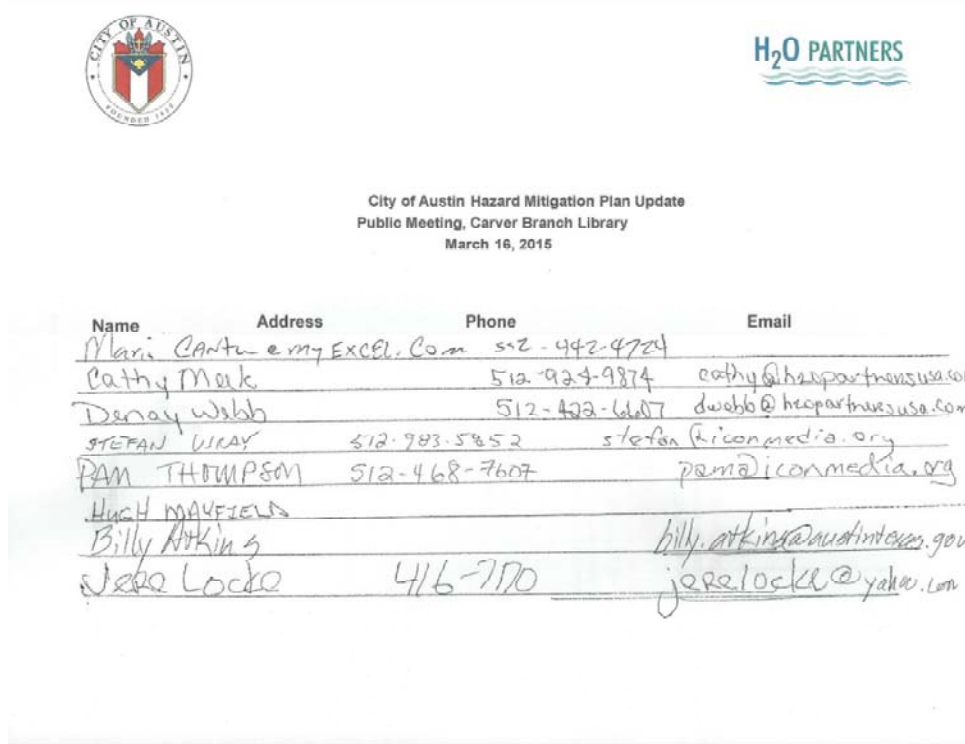 CITY OF AUSTIN
FOUNDED 1839
H2O PARTNERS
City of Austin Hazard Mitigation Plan Update
Public Meeting, Carver Branch Library
March 16, 2015
Name Address Phone Email
Cantu e my EXCEL.Com 512-442-4724
Cathy Meek 512-924-9874 cathy@h2opartnersusa.com
Denay Webb 512-422-6607 dwebb@h2opartnersusa.com
STEFAN WRAY 512.983.5852 stefan@iconmedia.org
PAM THOMPSON 512-468-7607 pam@iconmedia.org
HUGH MAYFIELD
Billy Atkins billy.atkins@austintexas.gov
Jere Locke 416-7170 jerelocke@yahoo.com